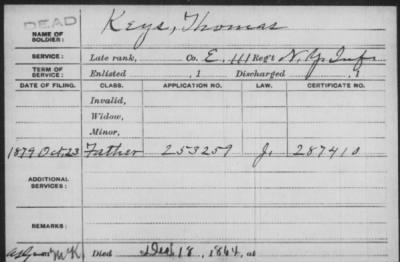 DEAD
NAME OF SOLDIER: Keys, Thomas
SERVICE: Late rank, Co. E. 111 Reg't N.Y. Inf.
TERM OF SERVICE: Enlisted , 1 Discharged , 1
DATE OF FILING. CLASS. APPLICATION NO. LAW. CERTIFICATE NO.
Invalid,
Widow,
Minor,
1879 Oct. 23 Father 253259 J. 287410
ADDITIONAL SERVICES:
REMARKS:
Died 18, 1864, at